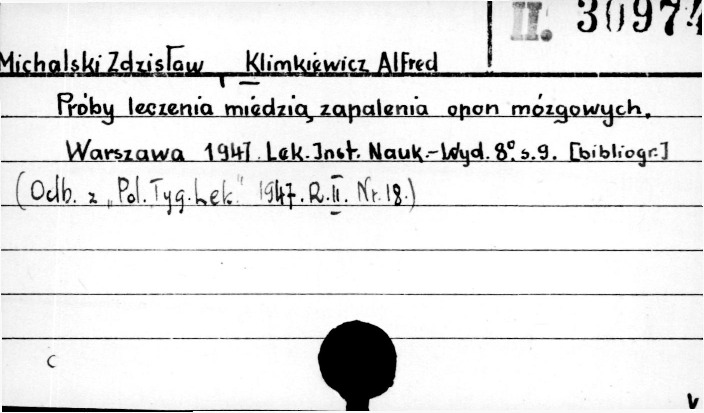 II. 30974
Michalski Zdzisław, Klimkiewicz Alfred
Próby leczenia miedzią zapalenia opon mózgowych.
Warszawa 1947. Lek. Inst. Nauk.-Wyd. 8°. s. 9. [bibliogr.]
(Odb. z „Pol. Tyg. Lek." 1947. R. II. Nr. 18.)
c
v